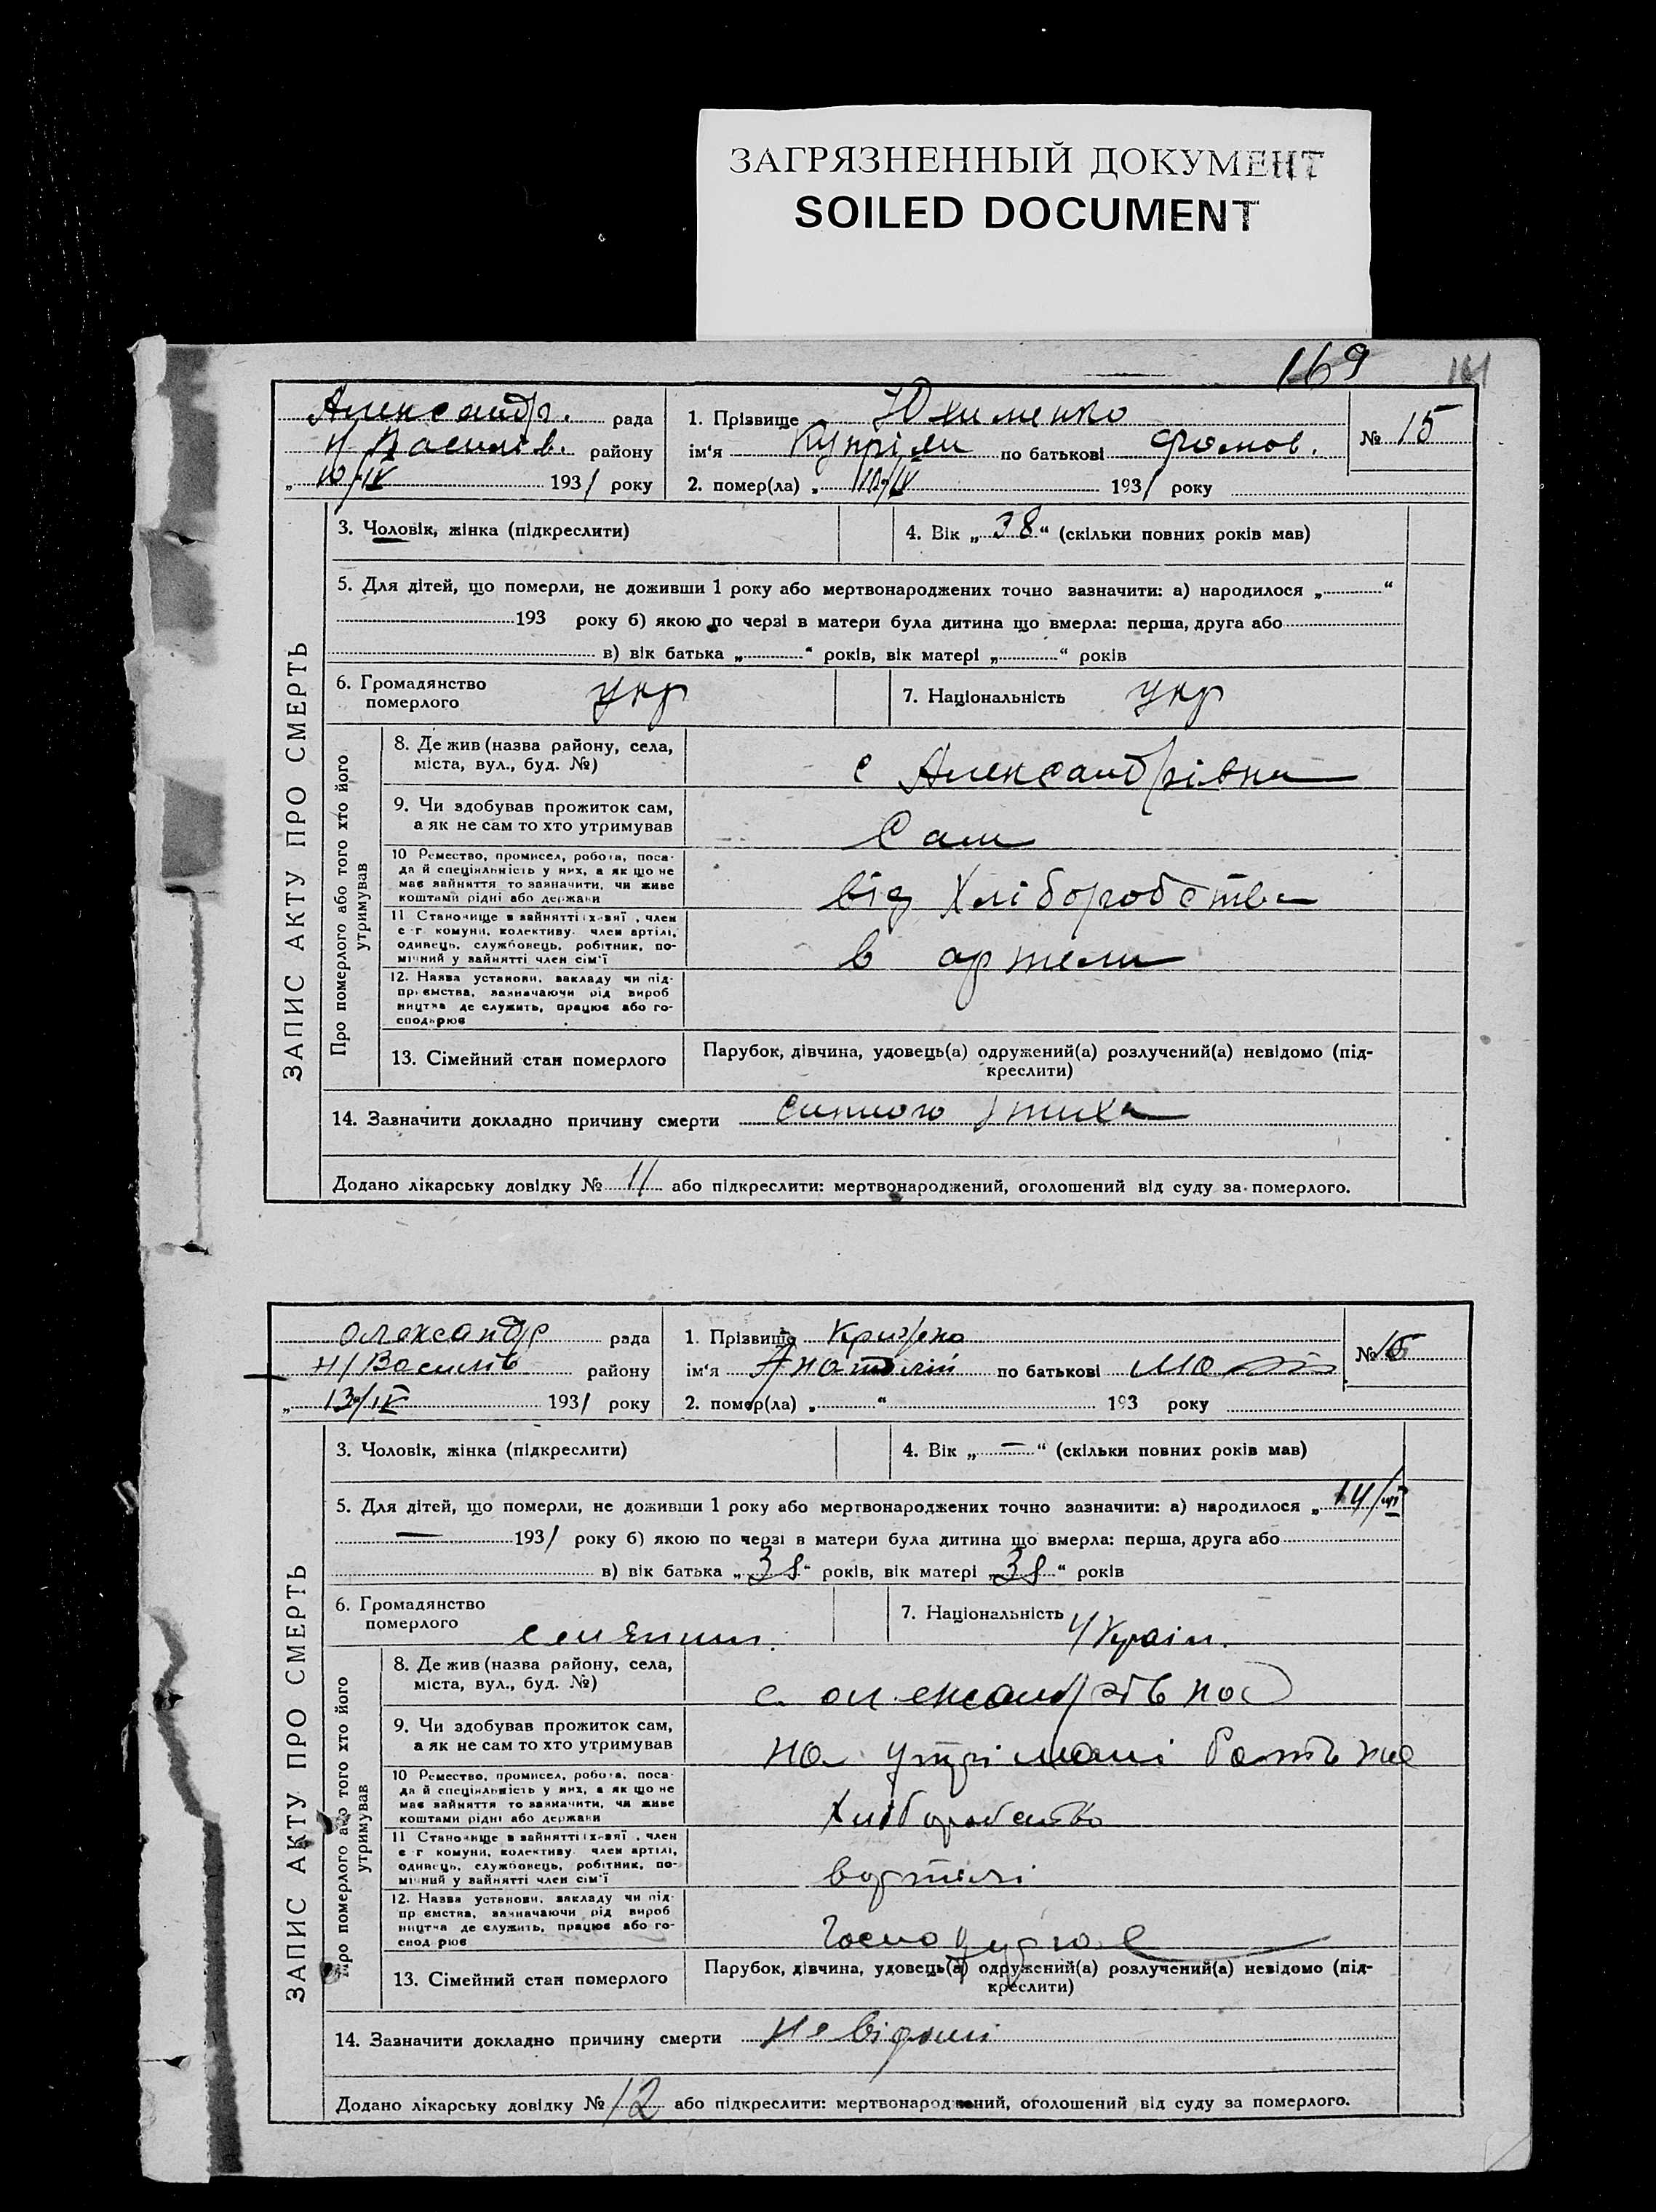 ЗАГРЯЗНЕННЫЙ ДОКУМЕНТ
SOILED DOCUMENT
169
ЗАПИС АКТУ ПРО СМЕРТЬ
Александр. рада
Н Василів. району
„ 10/IV 1931 року
1. Прізвище Юхименко
ім‘я Купріян по батькові Фомов.
№ 15
2. помер(ла) „ 10/IV 1931 року
3. Чоловік, жінка (підкреслити)
4. Вік „ 38 “ (скільки повних років мав)
5. Для дітей, що померли, не доживши 1 року або мертвонароджених точно зазначити: а) народилося „ “
193 року б) якою по черзі в матери була дитина що вмерла: перша, друга або
в) вік батька „ “ років, вік матері „ “ років
6. Громадянство померлого укр
7. Національність укр
Про померлого або того хто його утримував
8. Де жив (назва району, села,
міста, вул., буд. №)
с Александрівка
9. Чи здобував прожиток сам,
а як не сам то хто утримував
Сам
10 Ремество, промисел, робота, поса-
да й спеціяльність у них, а як що не
має зайняття то зазначити, чи живе
коштами рідні або держави
від Хліборобства
11 Становище в зайнятті , член
с-г комуни, колективу член артілі,
одинець, службовець, робітник, по-
мічний у зайнятті член сім‘ї
в артели
12. Назва установи, закладу чи під-
приємства, зазначаючи рід вироб
ництва де служить, працює або го-
сподарює
13. Сімейний стан померлого
Парубок, дівчина, удовець(а) одружений(а) розлучений(а) невідомо (під-
креслити)
14. Зазначити докладно причину смерти сипного тиха
Додано лікарську довідку № 11 або підкреслити: мертвонароджений, оголошений від суду за померлого.
ЗАПИС АКТУ ПРО СМЕРТЬ
Олександр рада
Н/Василів району
„ 13/IV 1931 року
1. Прізвище
ім‘я Анатолій по батькові
№ 16
2. помер(ла) „ “ 193 року
3. Чоловік, жінка (підкреслити)
4. Вік „ — “ (скільки повних років мав)
5. Для дітей, що померли, не доживши 1 року або мертвонароджених точно зазначити: а) народилося „ 14/
— 1931 року б) якою по черзі в матери була дитина що вмерла: перша, друга або
в) вік батька „ 38 “ років, вік матері „ 38 “ років
6. Громадянство померлого
7. Національність Україн.
Про померлого або того хто його утримував
8. Де жив (назва району, села,
міста, вул., буд. №)
с. олександрівка
9. Чи здобував прожиток сам,
а як не сам то хто утримував
на утрімані батька
10 Ремество, промисел, робота, поса-
да й спеціяльність у них, а як що не
має зайняття то зазначити, чи живе
коштами рідні або держави
Хліборобство
11 Становище в зайнятті , член
с-г комуни, колективу член артілі,
одинець, службовець, робітник, по-
мічний у зайнятті член сім‘ї
вортілі
12. Назва установи, закладу чи під-
приємства, зазначаючи рід вироб
ництва де служить, працює або го-
сподарює
13. Сімейний стан померлого
Парубок, дівчина, удовець(а) одружений(а) розлучений(а) невідомо (під-
креслити)
14. Зазначити докладно причину смерти невідомі
Додано лікарську довідку № 12 або підкреслити: мертвонароджений, оголошений від суду за померлого.